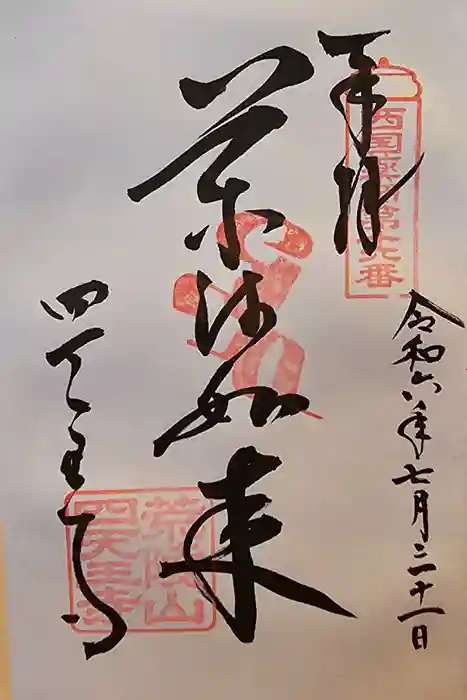 西国薬師第十六番
奉拝
令和六年七月三十一日
薬師如来
四天王寺
荒陵山
四天王寺